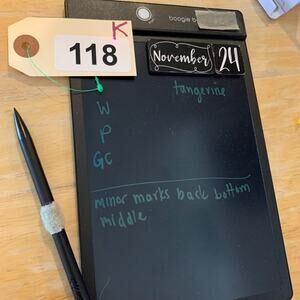 K
118
boogie b
November 24
tangerine
W
P
GC
minor marks back bottom
middle